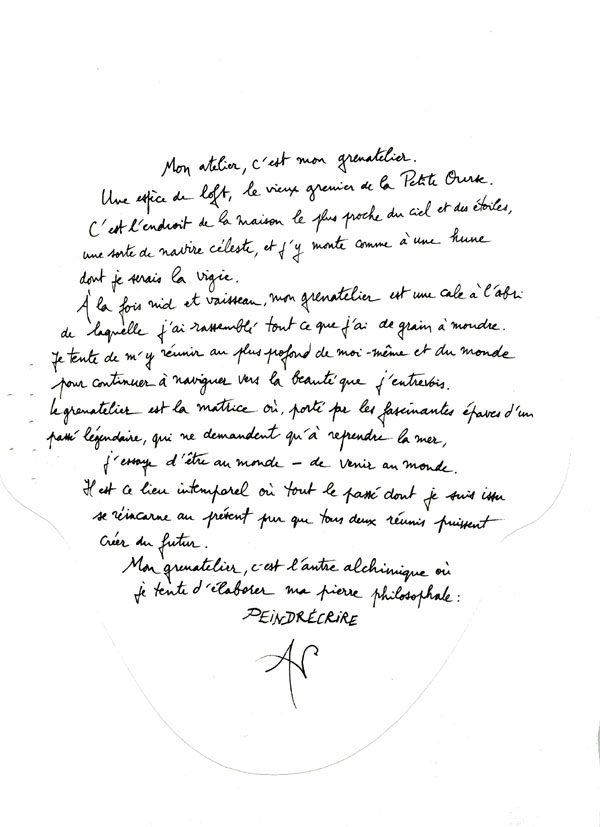 Mon atelier, c'est mon grenatelier.
Une espèce de loft, le vieux grenier de la Petite Ourse.
C'est l'endroit de la maison le plus proche du ciel et des étoiles,
une sorte de navire céleste, et j'y monte comme à une hune
dont je serais la vigie.
À la fois nid et vaisseau, mon grenatelier est une cale à l'abri
de laquelle j'ai rassemblé tout ce que j'ai de grain à moudre.
Je tente de m'y réunir au plus profond de moi-même et du monde
pour continuer à naviguer vers la beauté que j'entrevois.
Le grenatelier est la matrice où, porté par les fascinantes épaves d'un
passé légendaire, qui ne demandent qu'à reprendre la mer,
j'essaye d'être au monde – de venir au monde.
Il est ce lieu intemporel où tout le passé dont je suis issu
se réincarne au présent pour que tous deux réunis puissent
créer du futur.
Mon grenatelier, c'est l'antre alchimique où
je tente d'élaborer ma pierre philosophale :
PEINDRÉCRIRE